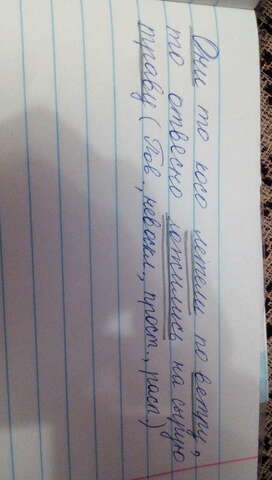 Они то косо летели по ветру,
то отвесно ложились на сырую
траву (Пов., невоскл., прост., расп)